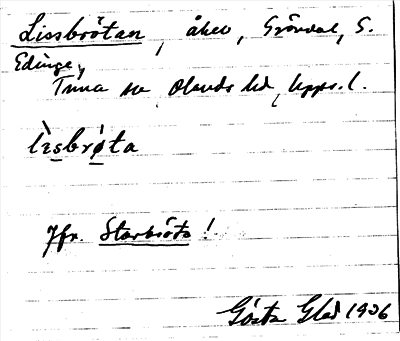 Lissbrötan, åker, Gröndal, S.
Edinge,
Tuna sn Olands hd, Upps. l.
lìsbrø̀ta
Jfr. Starbröta!
Gösta Glad 1906